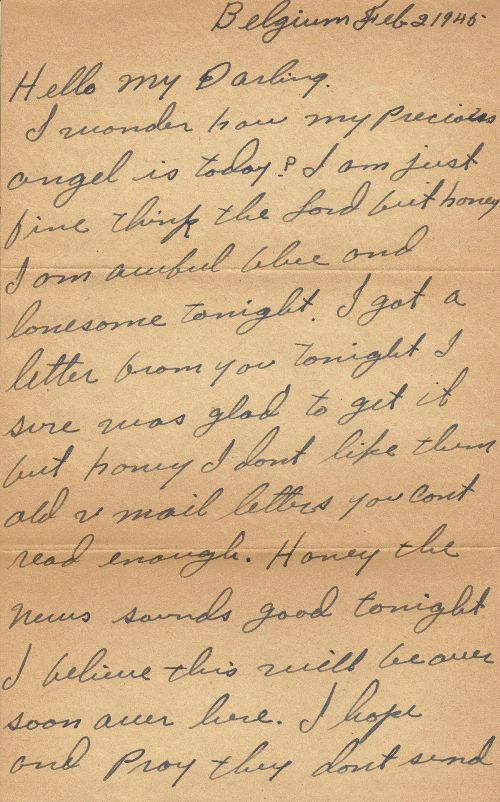 Belgium Feb 2 1945
Hello my Darling.
I wonder how my precious
angel is today? I am just
fine think the Lord but honey
I am awful blue and
lonesome tonight. I got a
letter from you tonight I
sure was glad to get it
but honey I dont like them
old v mail letters you cont
read enough. Honey the
news sounds good tonight
I believe this will be over
soon over here. I hope
and Pray they dont send